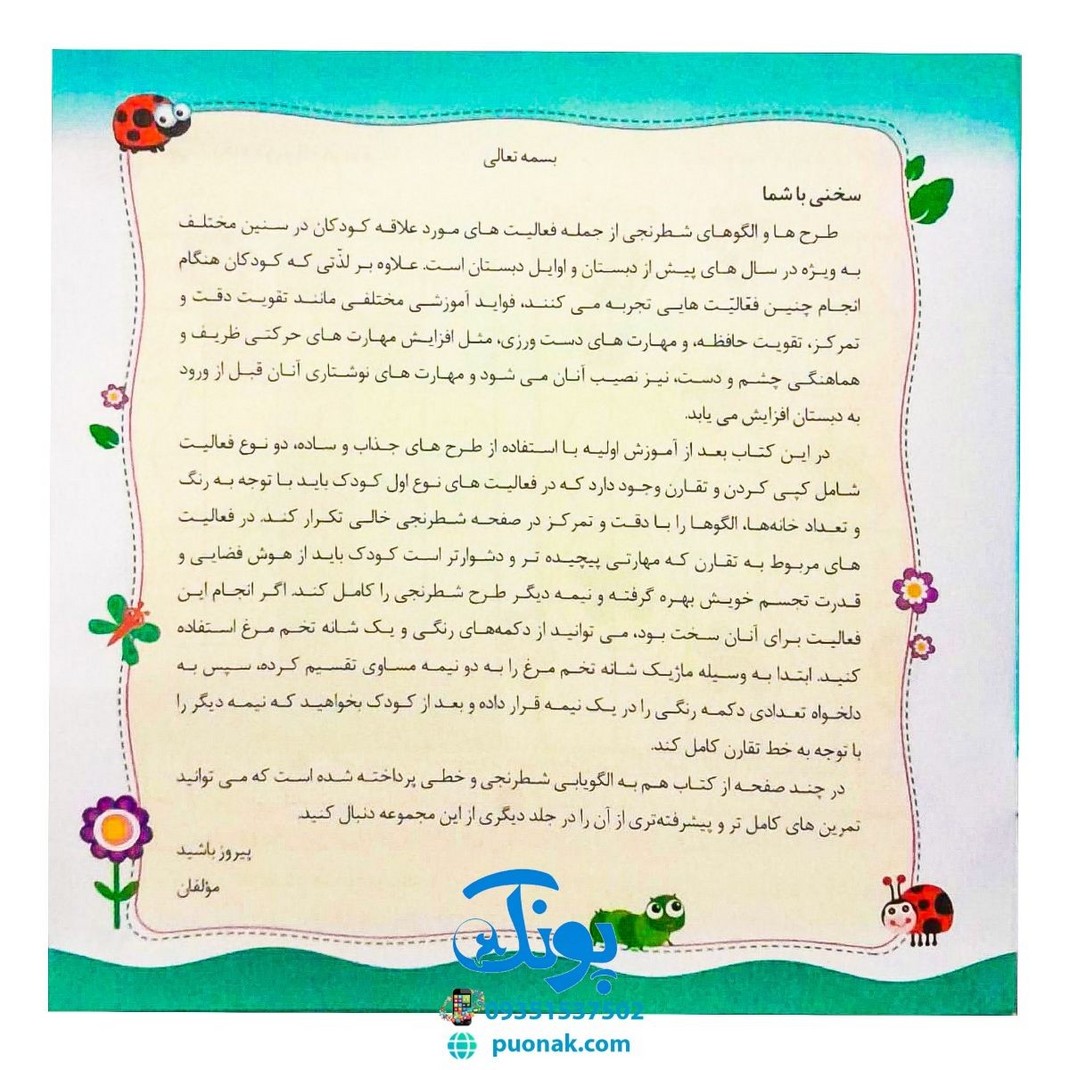 بسمه تعالی
سخنی با شما
طرح ها و الگوهای شطرنجی از جمله فعالیت های مورد علاقه کودکان در سنین مختلف
به ویژه در سال های پیش از دبستان و اوایل دبستان است. علاوه بر لذّتی که کودکان هنگام
انجام چنین فعّالیّت هایی تجربه می کنند، فواید آموزشی مختلفی مانند تقویت دقت و
تمرکز، تقویت حافظه، و مهارت های دست ورزی، مثل افزایش مهارت های حرکتی ظریف و
هماهنگی چشم و دست، نیز نصیب آنان می شود و مهارت های نوشتاری آنان قبل از ورود
به دبستان افزایش می یابد.
در این کتاب بعد از آموزش اولیه با استفاده از طرح های جذاب و ساده، دو نوع فعالیت
شامل کپی کردن و تقارن وجود دارد که در فعالیت های نوع اول کودک باید با توجه به رنگ
و تعداد خانه‌ها، الگوها را با دقت و تمرکز در صفحه شطرنجی خالی تکرار کند. در فعالیت
های مربوط به تقارن که مهارتی پیچیده تر و دشوارتر است کودک باید از هوش فضایی و
قدرت تجسم خویش بهره گرفته و نیمه دیگر طرح شطرنجی را کامل کند. اگر انجام این
فعالیت برای آنان سخت بود، می توانید از دکمه‌های رنگی و یک شانه تخم مرغ استفاده
کنید. ابتدا به وسیله ماژیک شانه تخم مرغ را به دو نیمه مساوی تقسیم کرده، سپس به
دلخواه تعدادی دکمه رنگی را در یک نیمه قرار داده و بعد از کودک بخواهید که نیمه دیگر را
با توجه به خط تقارن کامل کند.
در چند صفحه از کتاب هم به الگویابی شطرنجی و خطی پرداخته شده است که می توانید
تمرین های کامل تر و پیشرفته‌تری از آن را در جلد دیگری از این مجموعه دنبال کنید.
پیروز باشید
مؤلفان
پونک
09351537502
puonak.com